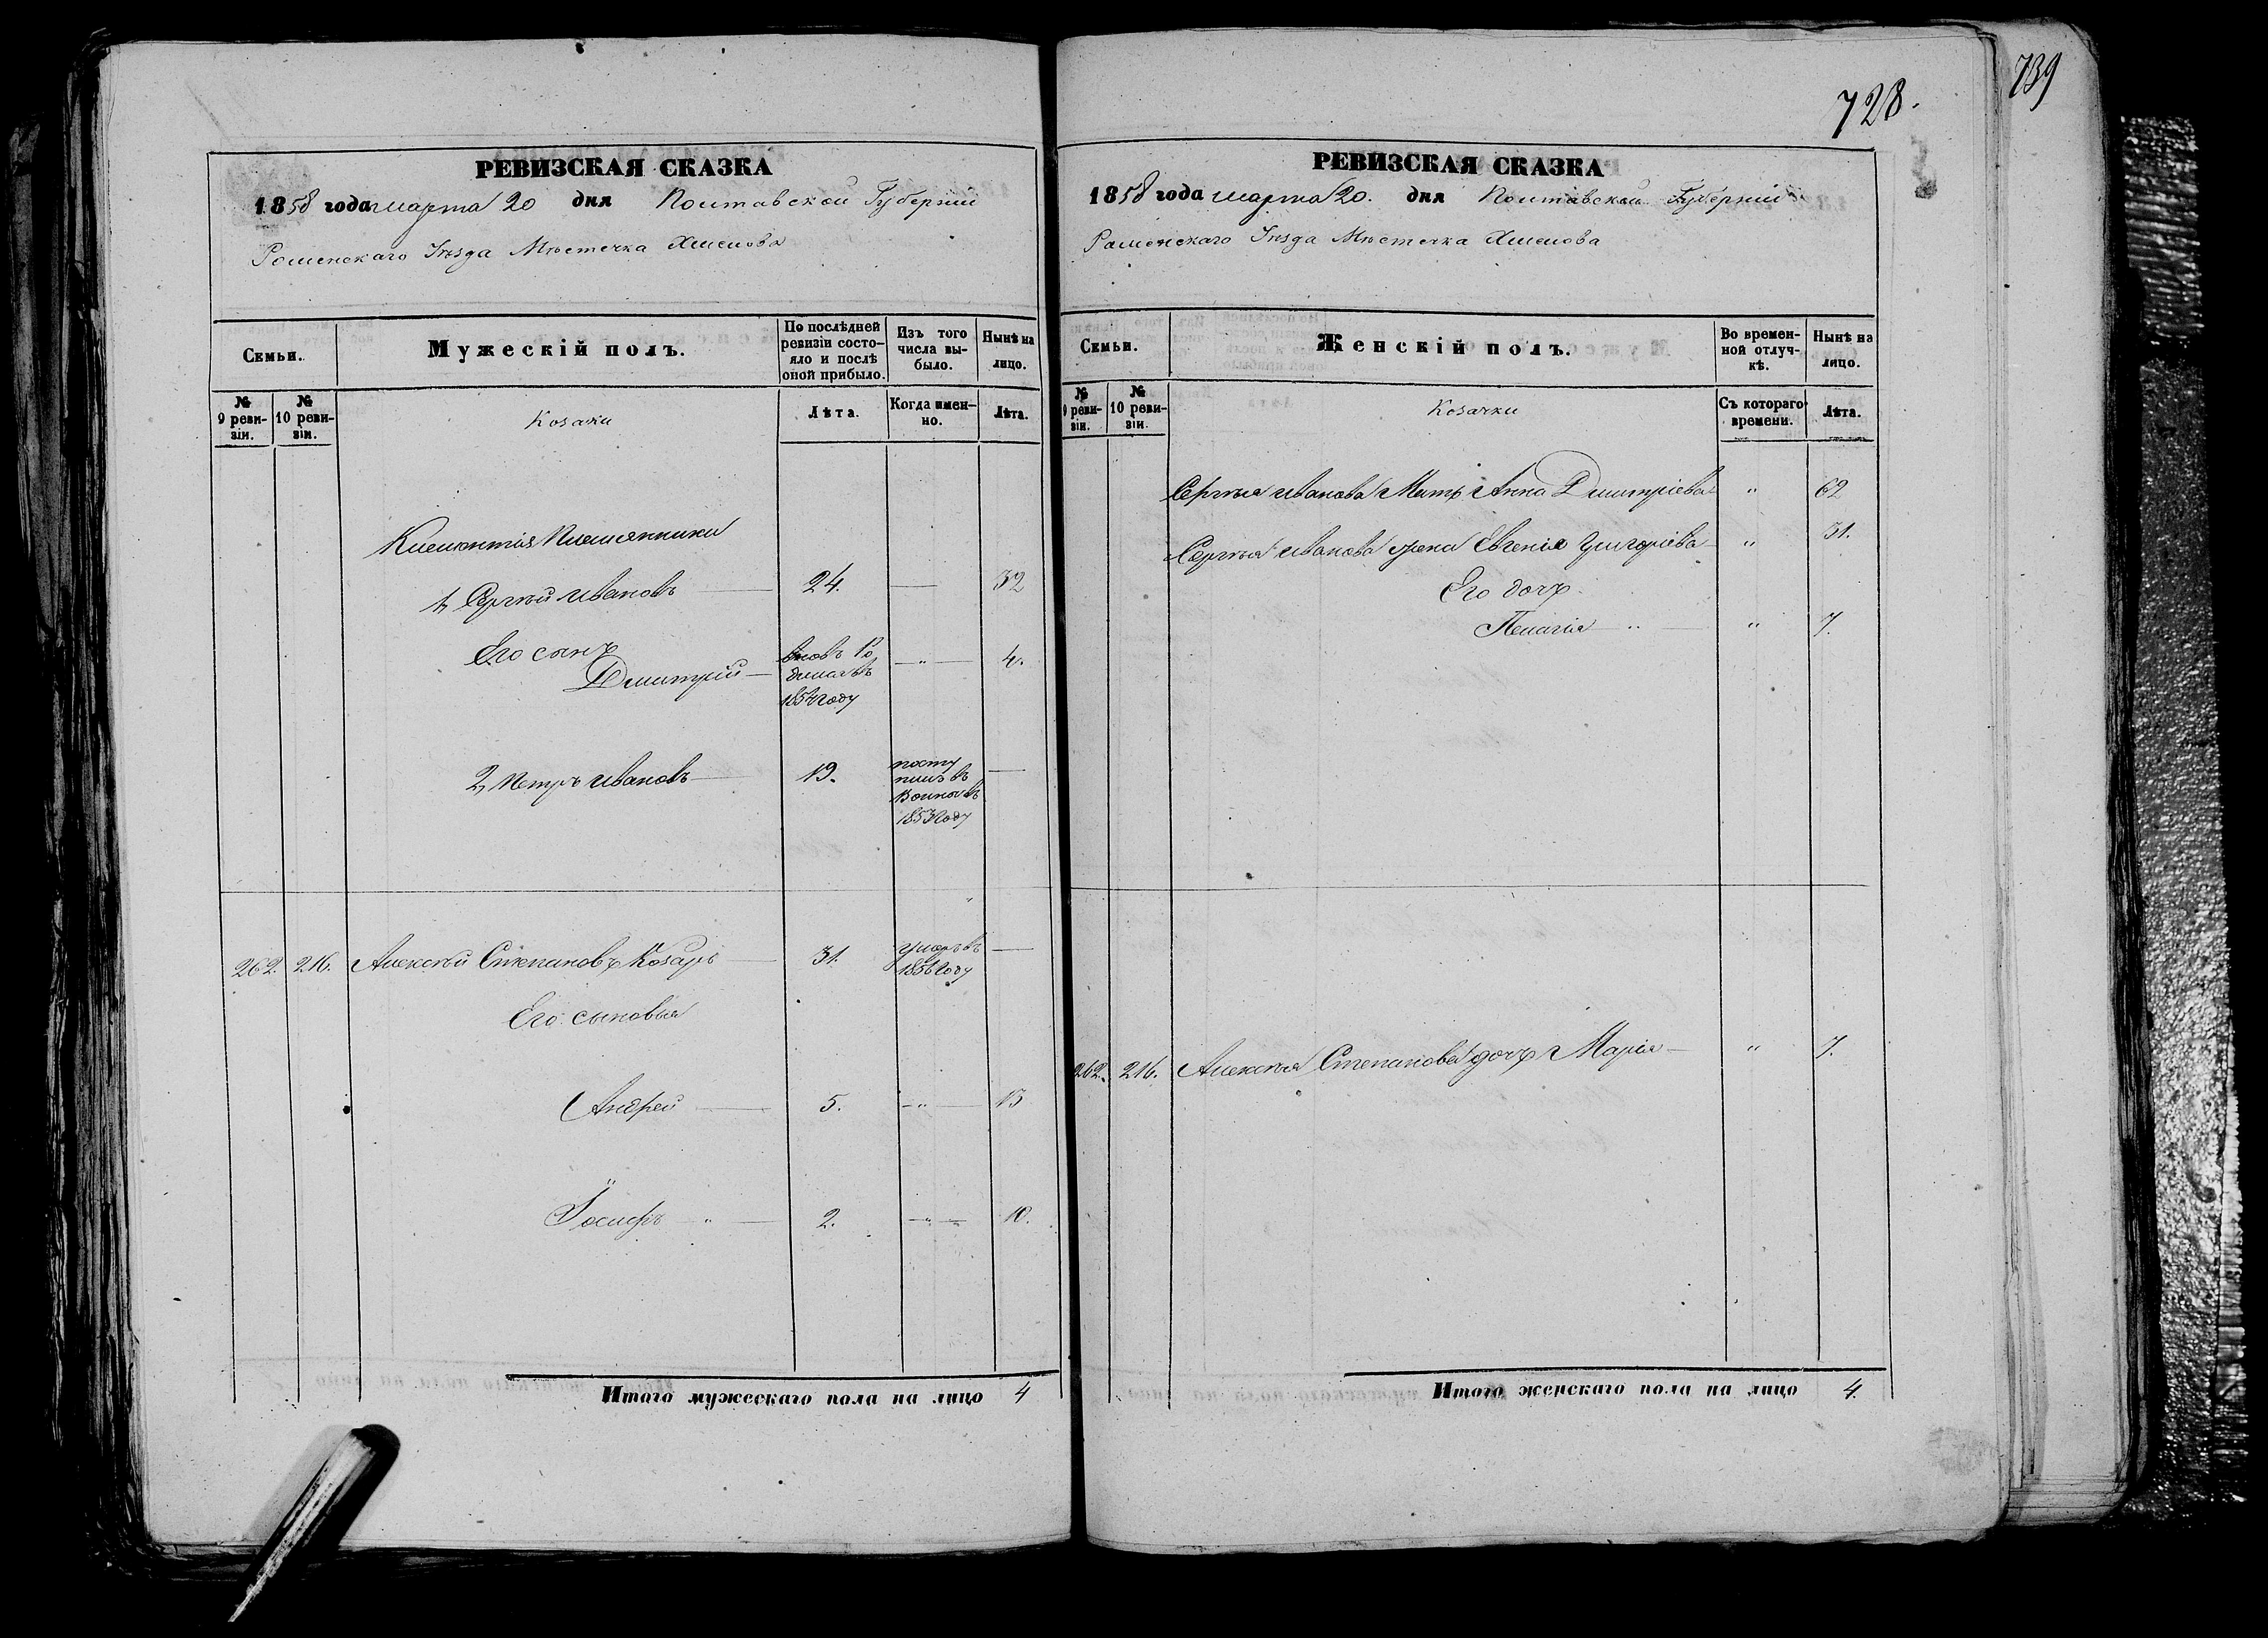 739
728.
РЕВИЗСКАЯ СКАЗКА
1858 года марта 20 дня Полтавской Губерніи
Роменскаго Уѣзда Мѣстечка Хмелова
Семьи.
Мужескій полъ.
По послѣдней ревизіи состояло и послѣ оной прибыло.
Изъ того числа выбыло.
Нынѣ на лицо.
№ 9 ревизіи.
№ 10 ревизіи.
Козаки
Лѣта.
Когда именно.
Лѣта.
Климентія Племянники
1, Сергѣй Ивановъ 24. — 32
Его сынъ
Дмитрій вновь Ро — " — 4.
дился въ
1854 году
2, Петръ Ивановъ 19. посту —
пилъ въ
1853 году
262. 216. Алексѣй Степановъ Козаръ 31. умеръ въ —
1856 году
Его сыновья
Андрей 5. — " — 13
Іосифъ " 2. — " — 10.
Итого мужескаго пола на лицо 4
РЕВИЗСКАЯ СКАЗКА
1858 года марта 20. дня Полтавской Губерніи
Роменскаго Уѣзда Мѣстечка Хмелова
Семьи.
Женскій полъ.
Во временной отлучкѣ.
Нынѣ на лицо.
№ 9 ревизіи.
№ 10 ревизіи.
Козачки
Съ котораго времени.
Лѣта.
Сергѣя Иванова Мать Анна Дмитріева " 62
Сергѣя Иванова жена Евгенія Григоріева " 31.
Его дочь
Пелагія " " 7.
262. 216. Алексѣя Степанова дочь Марія " 7.
Итого женскаго пола на лицо 4.